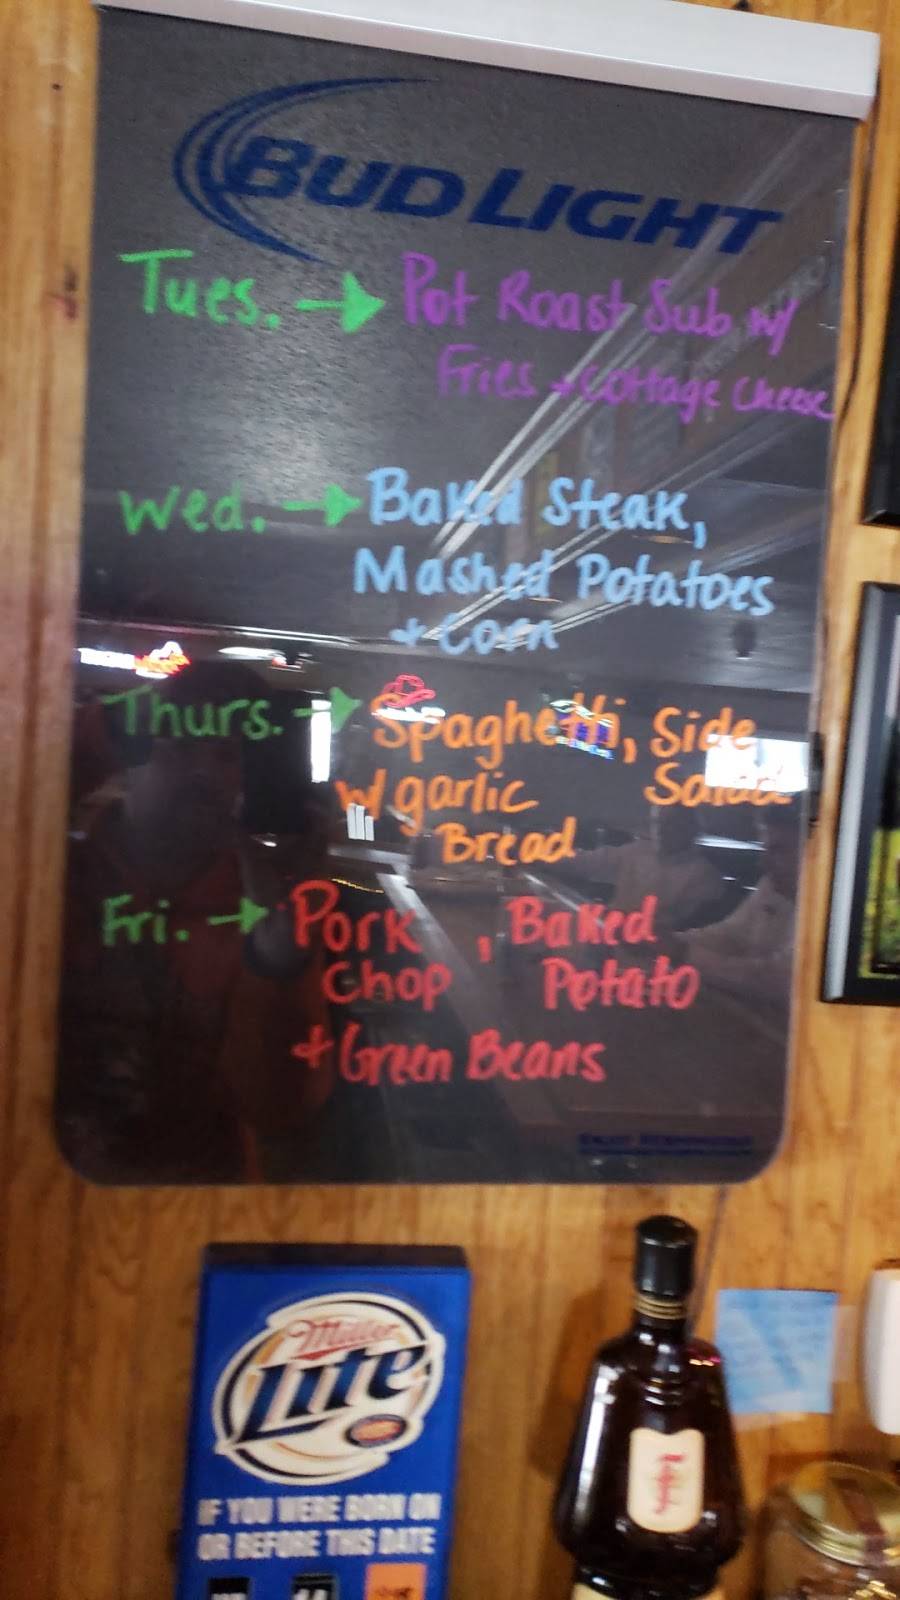 BUD LIGHT
Tues. → Pot Roast Sub w/
Fries + Cottage Cheese
Wed. → Baked Steak,
Mashed Potatoes
+ Corn
Thurs. → Spaghetti, Side
w/ garlic Salad
Bread
Fri. → Pork , Baked
Chop Potato
+ Green Beans
Miller
Lite
IF YOU WERE BORN ON
OR BEFORE THIS DATE